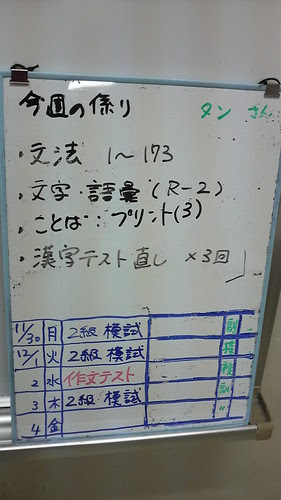 今週の係り タン さん
・文法 1～173
・文字・語彙(R-2)
・ことば:プリント(3)
・漢字テスト直し ×3回
11/30 月 2級 模試 副
12/1 火 2級 模試
2 水 作文テスト
3 木 2級 模試 〃
4 金